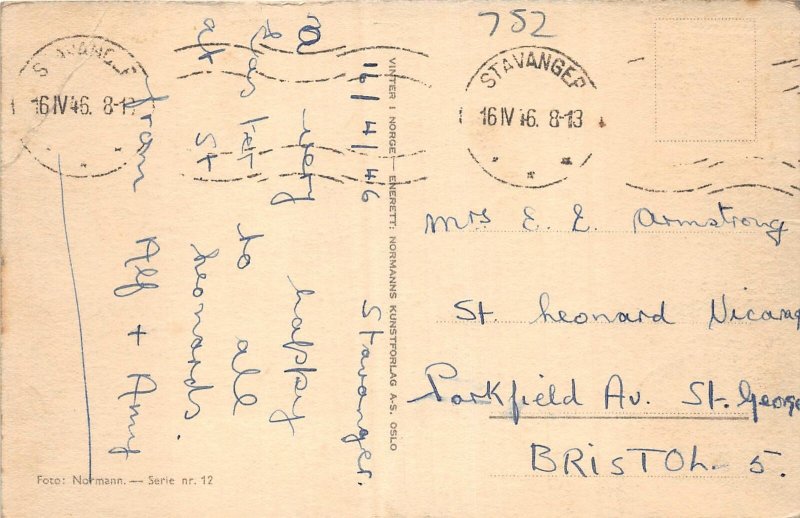 752
STAVANGER
16 IV 46. 8-13
STAVANGER
16 IV 46. 8-13
16/4/46 Stavanger.
a very happy
Easter to all
at St Leonards.
from Alf + Amy
VINTER I NORGE — ENERETT: NORMANNS KUNSTFORLAG A-S. OSLO
Mrs E. E. Armstrong
St. Leonard Vicarag
Parkfield Av. St. George
BRISTOL. 5.
Foto: Normann. — Serie nr. 12